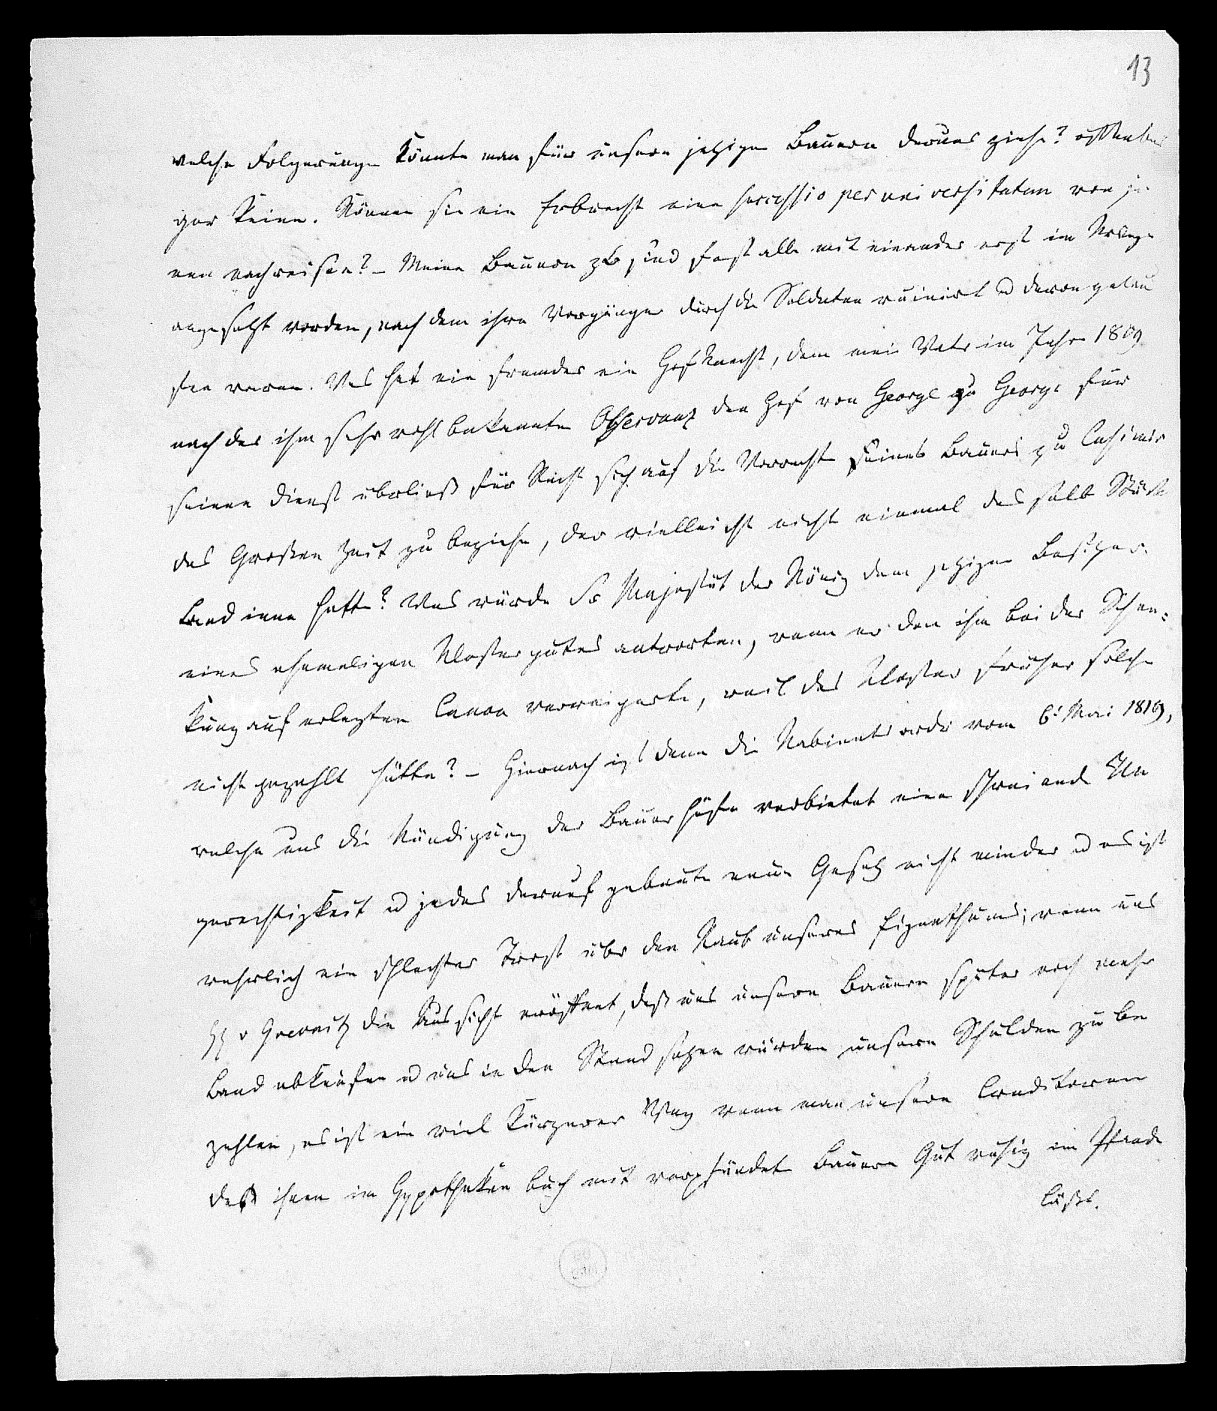 13
welche Folgerungen könnte man für unsere jetzigen Bauern daraus ziehn? offenbar
gar keine. Können sie ein Erbrecht eine successio per universitatem von je
nen nachweisen? – Meine Bauern zb sind fast alle mit einander erst im Kriege
angesetzt worden, nach dem ihre Vorgänger durch die Soldaten ruinirt u davon gelau
fen waren. Was hat ein fremder ein Hofknecht, dem mein Vater im Jahre 1809
nach der ihm sehr wohl bekannten Observanz den Hof von George zu George für
seinen Dienst überließ für Recht sich auf die Vorrechte seines Bauers zu Casimir
des Großen Zeit zu beziehn, der vielleicht nicht einmal das selbe Stück
Land inne hatte? Was würde Se Majestät der König dem jetzigen Besitzer
eines ehemaligen Klostergutes antworten, wenn er den ihm bei der Schen-
kung auf erlegten Canon verweigerte, weil das Kloster früher solche
nicht gezahlt hätte? – Hiernach ist denn die Kabinetsordre vom 6t Mai 1819,
welche uns die Kündigung der Bauerhöfe verbietet eine schreiende Un
gerechtigkeit u jedes darauf gebaute neue Gesetz nicht minder u es ist
wahrlich ein schlechter Trost über den Raub unseres Eigenthums; wenn uns
H v Grevenitz die Aussicht eröffnet, daß uns unsere Bauern später noch mehr
Land abkaufen u uns in den Stand setzen würden unsere Schulden zu be
zahlen, es ist ein viel kürzerer Weg wenn man unsern Creditoren
das ihnen im Hypothekenbuch mit verpfändete Bauern Gut ruhig im Pfande
läßt.